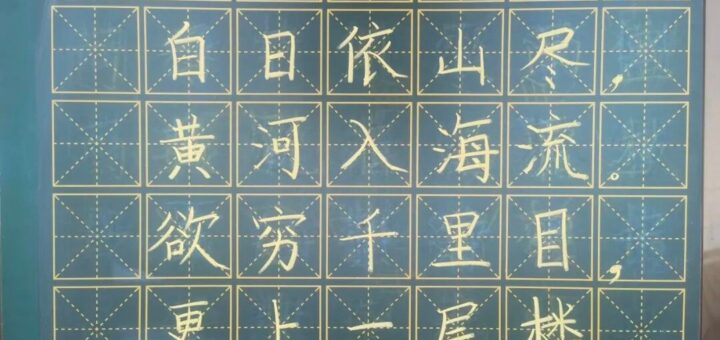 白日依山尽，
黄河入海流。
欲穷千里目，
更上一层楼